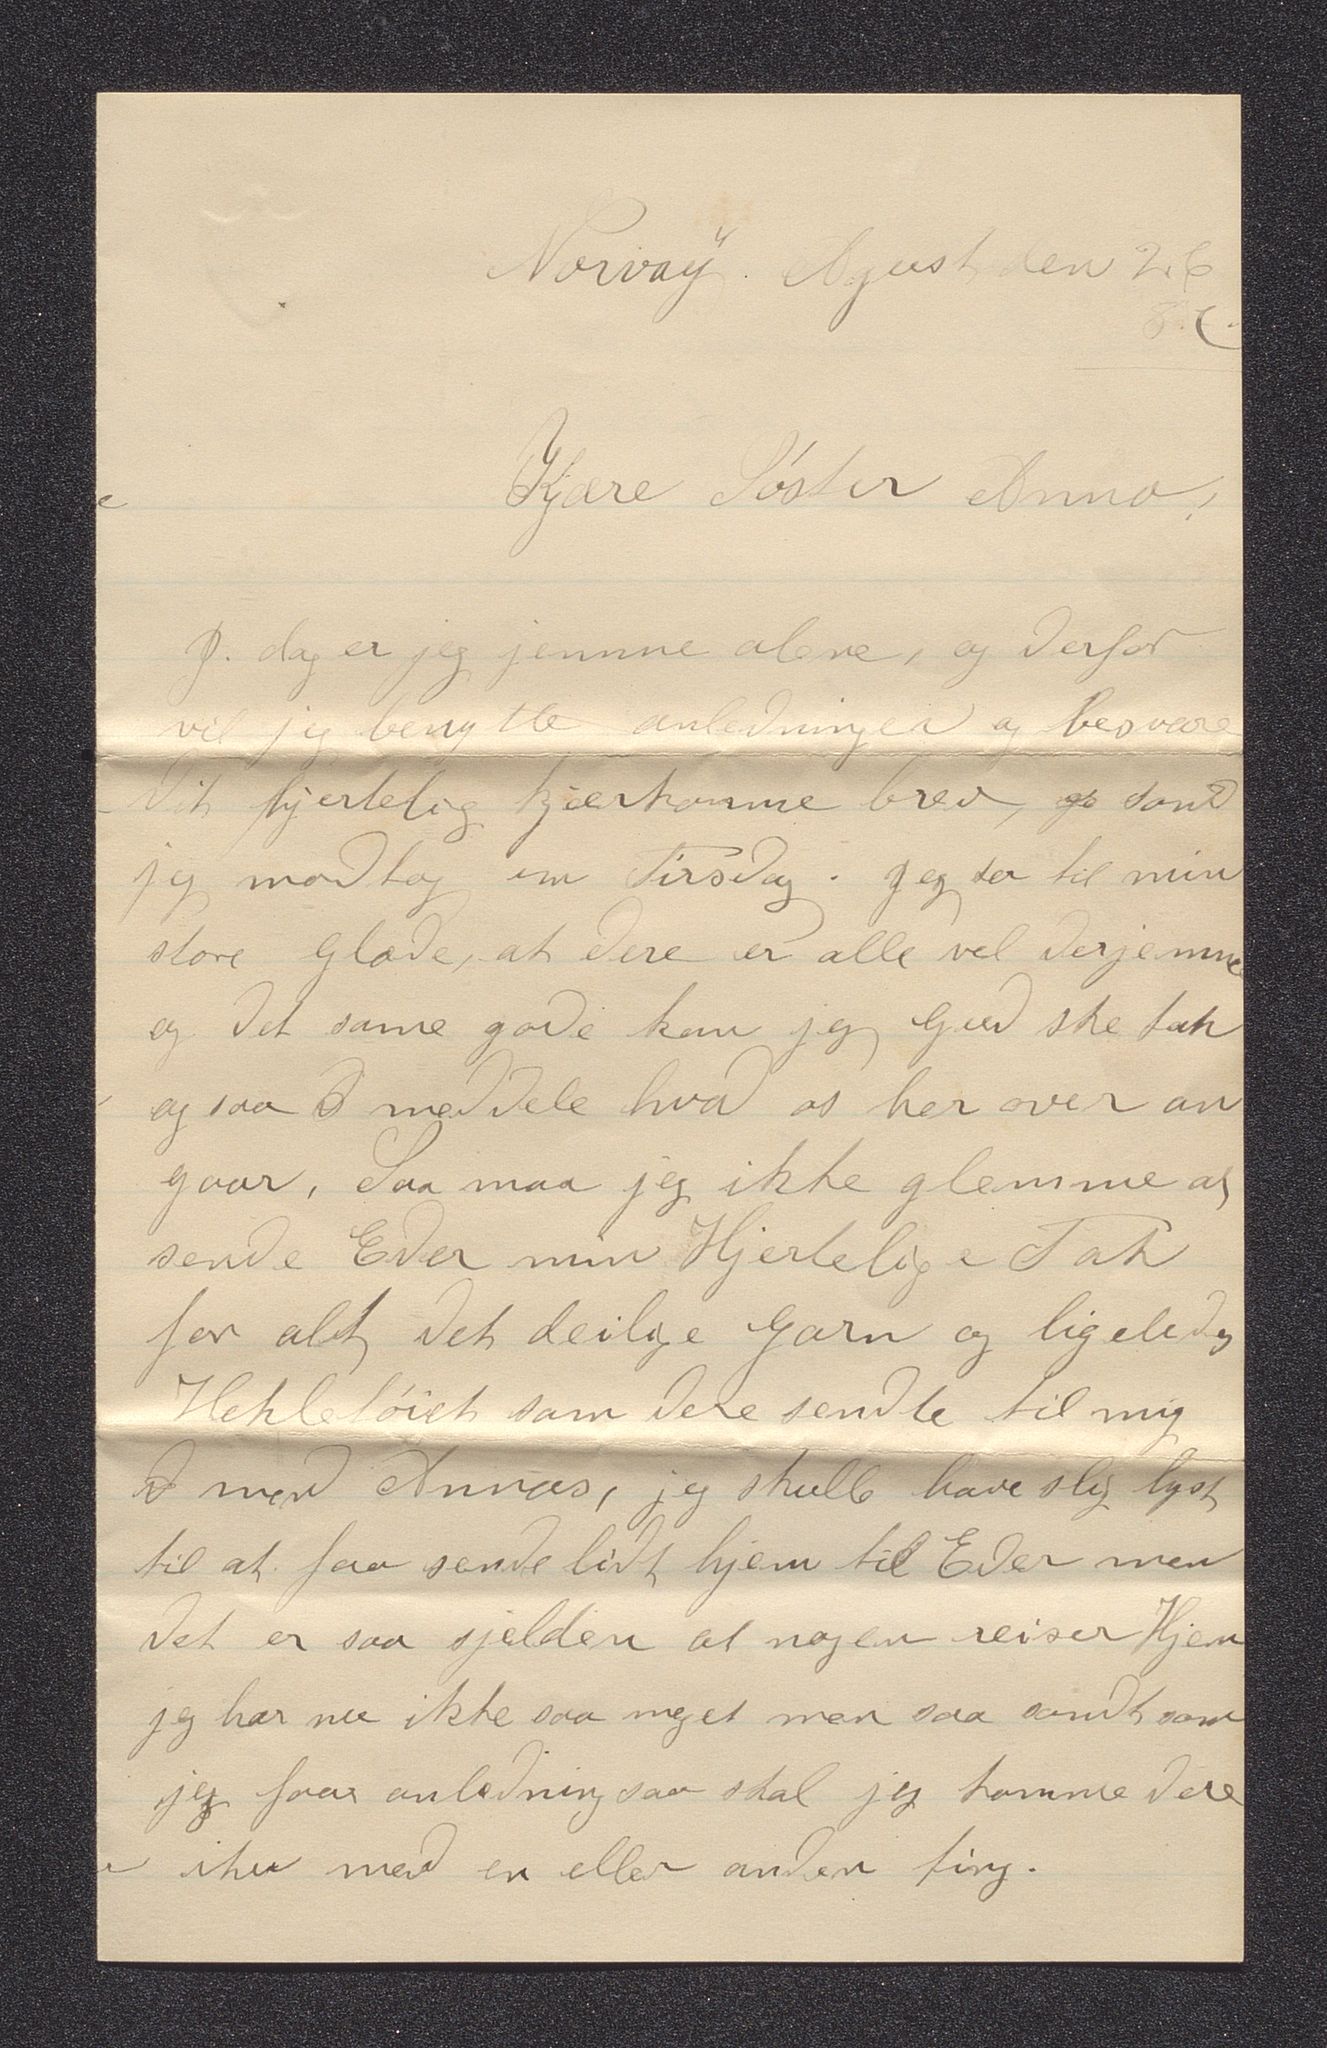 Norway. Agust den 26
Kjære Søster Anna!
I. dag er jeg jemme alene, og derfor
vil jeg benytte anledningen og besvare
dit hjertelig kjærkomne brev, som
jeg modtog om Tirsdag. jeg ser til min
store Glæde, at dere er alle vel derjemme
og det same gode kan jeg Gud ske tak
og saa meddele hvad os her over an
gaar, Saa maa jeg ikke glemme at
sende Eder min Hjertelige Tak
for alt det deilige Garn og ligeledes
Hekletøiet som dere sendte til mig
med Annæs, jeg skulle have slig lyst
til at faa sende lidt hjem til Eder men
det er saa sjelden at nogen reiser Hjem
jeg har nu ikke saa meget men saa sandt som
jeg faar anledning saa skal jeg komme dere
ihu med en eller anden ting.